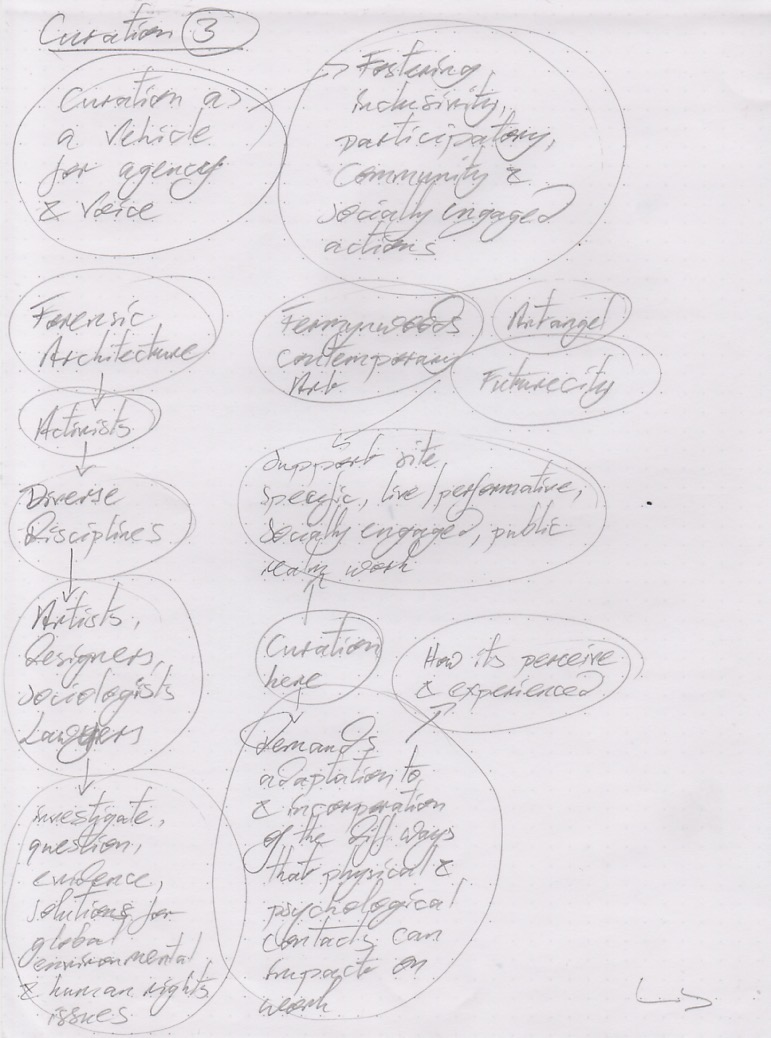 Curation 3
Curation as
a vehicle
for agency
& voice
Fostering,
inclusivity,
participatory,
community &
socially engaged
actions
Forensic
Architecture
Activists
Diverse
Disciplines
Artists,
Designers,
Sociologists
Lawyers
investigate,
question,
evidence,
solutions for
global
environmental
& human rights
issues
Fermynwoods
Contemporary
Art
Artangel
Futurecity
Support site
specific, live/performative,
socially engaged, public
realm work
Curation
here
How its perceive
& experienced
Demands
adaptation to
& incorporation
of the diff ways
that physical &
psychological
can
impact on
work